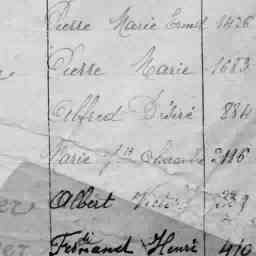 Pierre Marie Ernest 1436
Pierre Marie 1683
Alfred Désiré 884
Marie 2116
Albert Victor
Fernand Henri 410